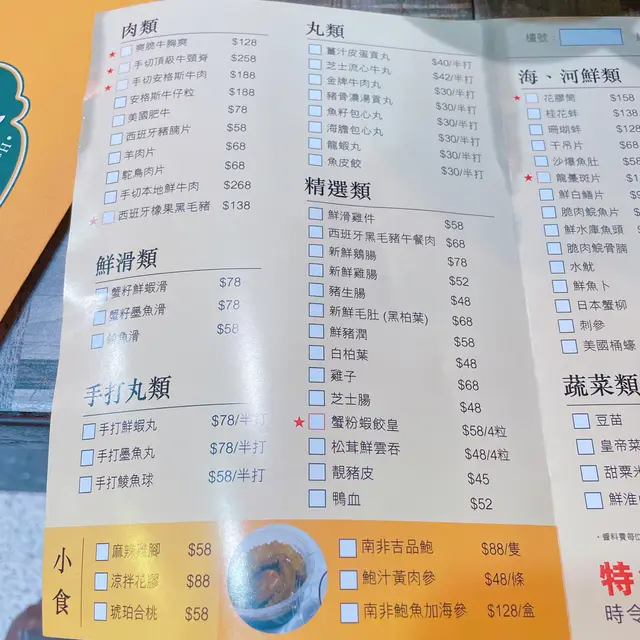 肉類
爽脆牛胸爽 $128
手切頂級牛頸脊 $258
手切安格斯牛肉 $188
安格斯牛仔粒 $188
美國肥牛 $78
西班牙豬腩片 $58
羊肉片 $68
鴕鳥肉片 $68
手切本地鮮牛肉 $268
西班牙橡果黑毛豬 $138
鮮滑類
蟹籽鮮蝦滑 $78
蟹籽墨魚滑 $78
魚滑 $58
手打丸類
手打鮮蝦丸 $78/半打
手打墨魚丸 $78/半打
手打鯪魚球 $58/半打
丸類
薑汁皮蛋貢丸 $40/半打
芝士流心牛丸 $42/半打
金牌牛肉丸 $30/半打
豬骨濃湯貢丸 $30/半打
魚籽包心丸 $30/半打
海膽包心丸 $30/半打
龍蝦丸 $30/半打
魚皮餃 $30/半打
精選類
鮮滑雞件 $58
西班牙黑毛豬午餐肉 $68
新鮮鵝腸 $78
新鮮雞腸 $52
豬生腸 $48
新鮮毛肚 (黑柏葉) $68
鮮豬潤 $58
白柏葉 $48
雞子 $68
芝士腸 $48
蟹粉蝦餃皇 $58/4粒
松茸鮮雲吞 $48/4粒
靚豬皮 $45
鴨血 $52
檯號：
海、河鮮類
花膠筒 $158
桂花蚌 $138
珊瑚蚌 $128
干吊片 $68
沙爆魚肚 $58
龍躉斑片
鮮白鱔片
脆肉鯇魚片
鮮水庫魚頭
脆肉鯇骨腩
水魷
鮮魚卜
日本蟹柳
刺參
美國桶蠔
蔬菜類
豆苗
皇帝菜
甜粟米
鮮淮
特
時令
小食
麻辣雞腳 $58
涼拌花膠 $88
琥珀合桃 $58
南非吉品鮑 $88/隻
鮑汁黃肉參 $48/條
南非鮑魚加海參 $128/盒